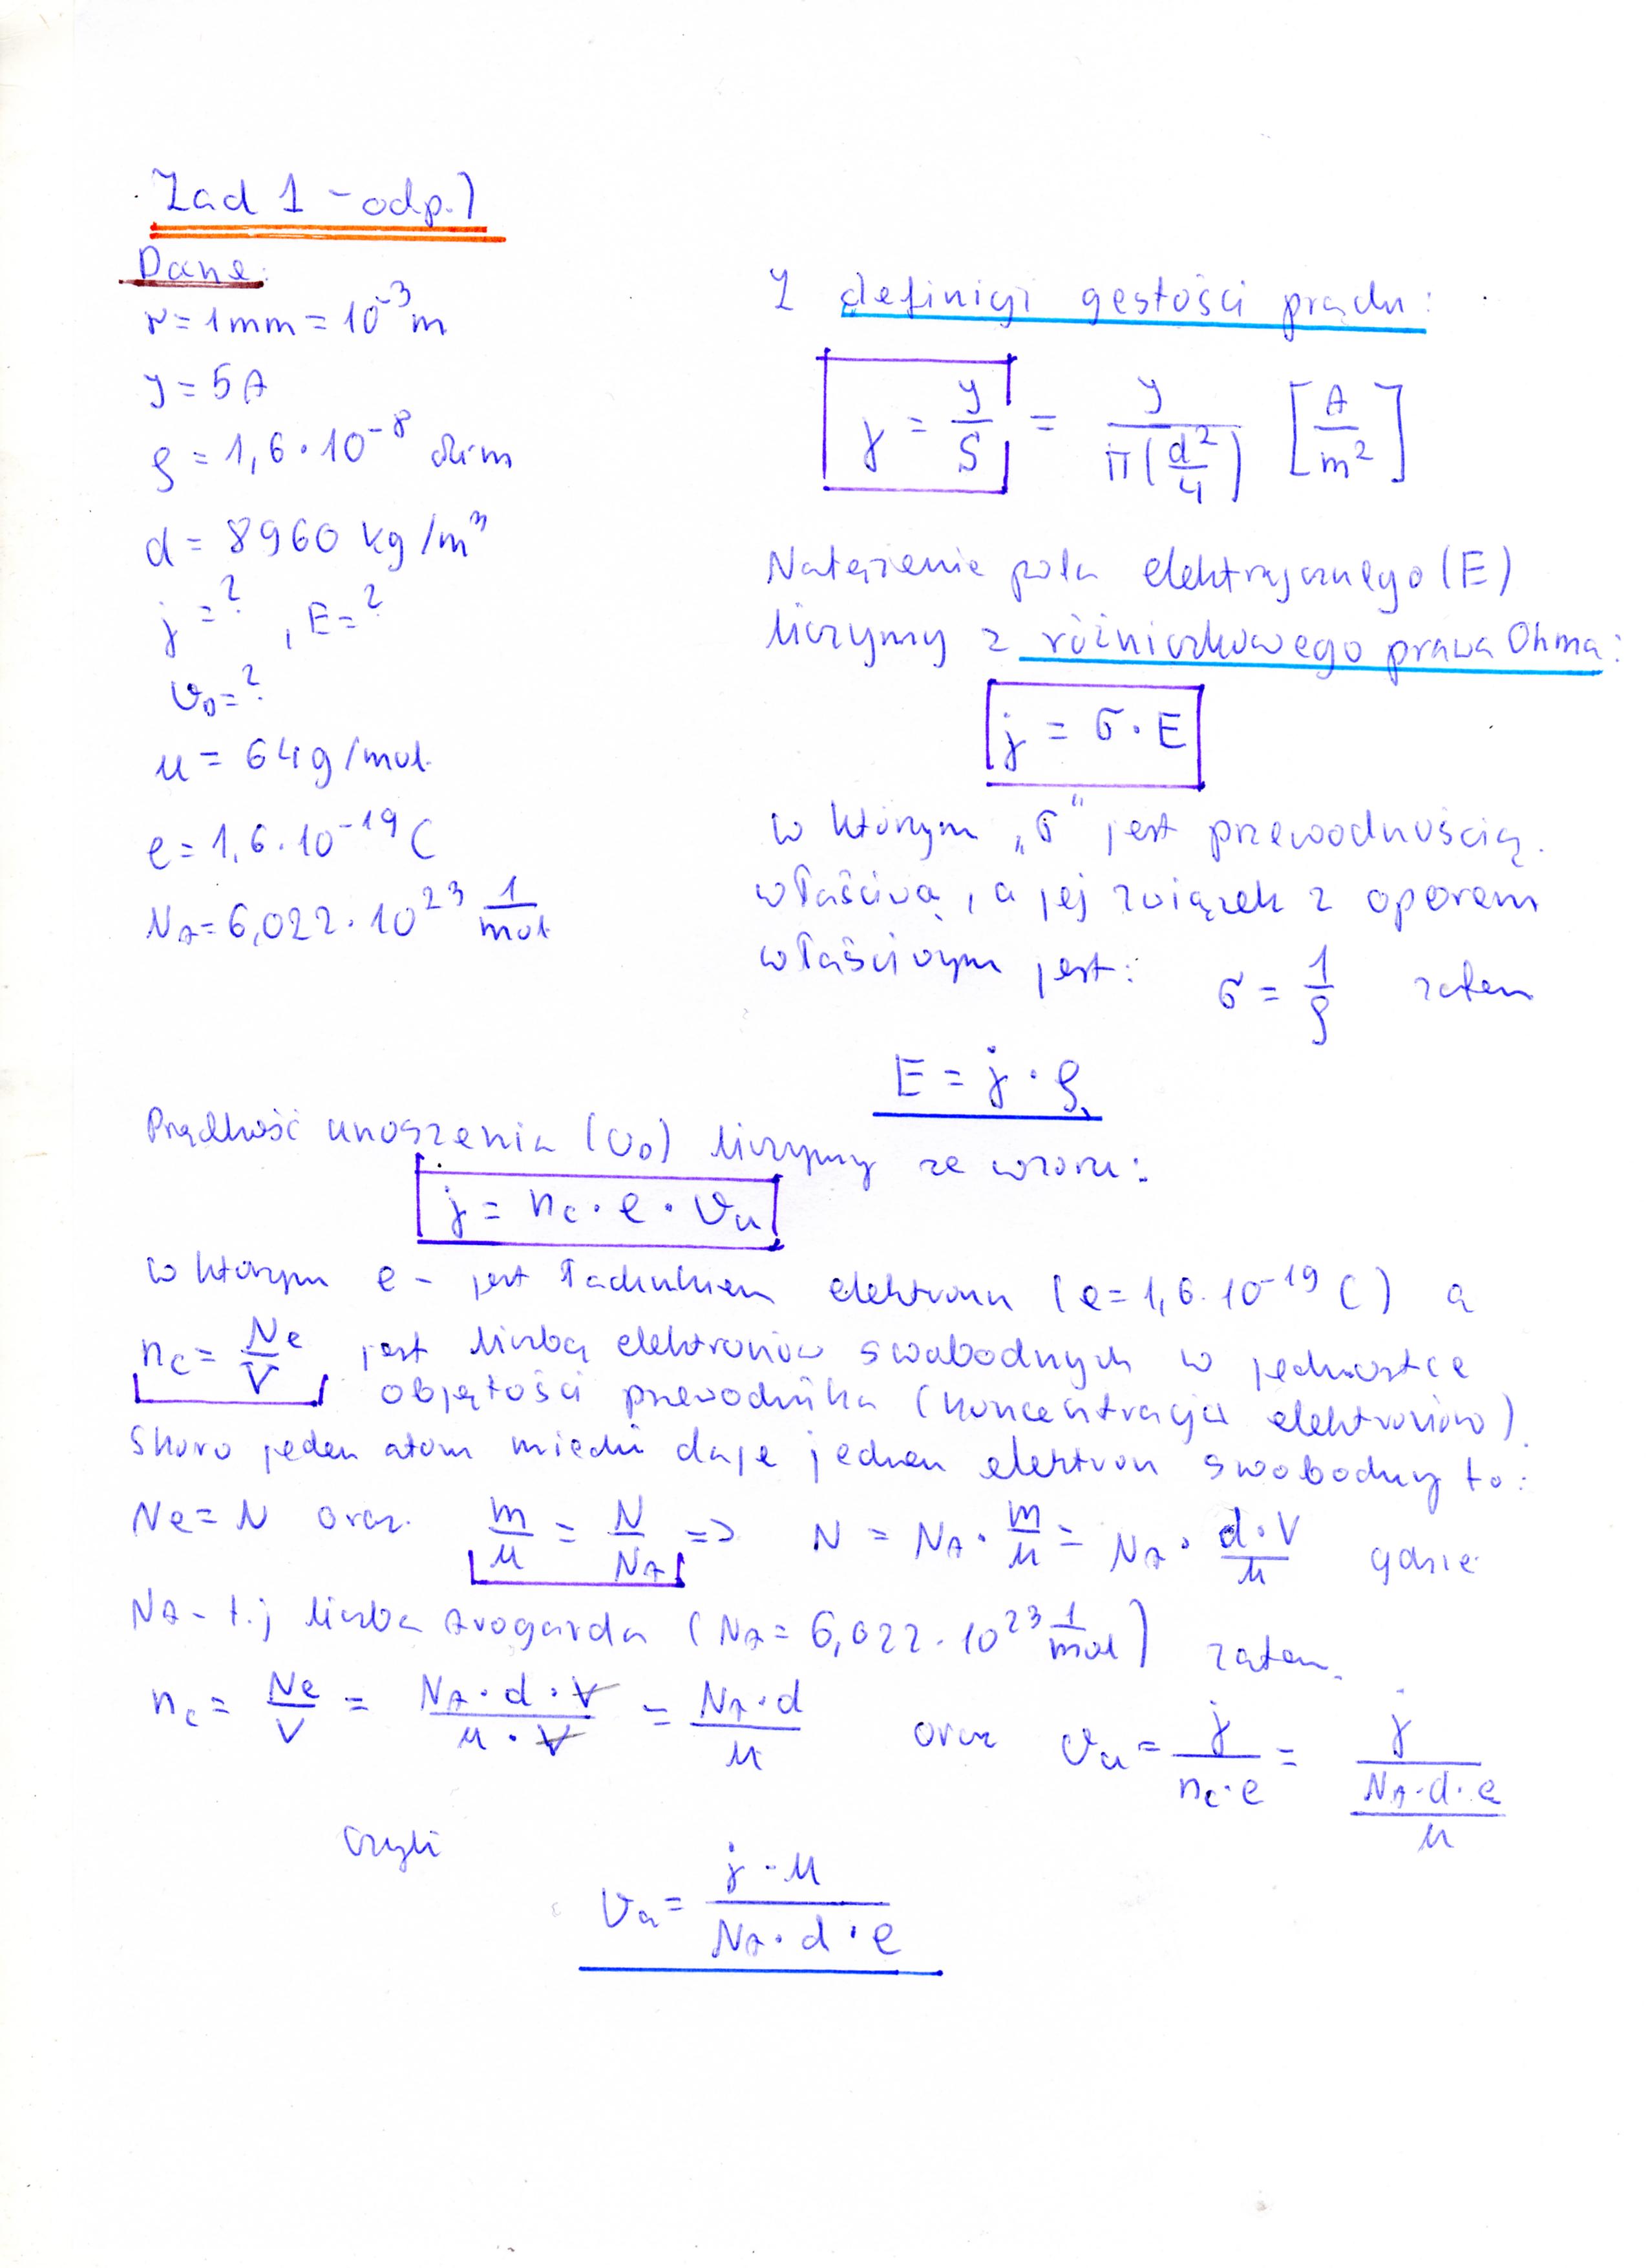 Zad 1 - odp.)
Dane:
r = 1mm = 10⁻³m
J = 5A
ρ = 1,6 · 10⁻⁸ Ωm
d = 8960 kg/m³
j = ? , E = ?
v₀ = ?
μ = 64g/mol
e = 1,6 · 10⁻¹⁹ C
N_A = 6,022 · 10²³ 1/mol
Z definicji gęstości prądu:
j = J/S = J/(π(d²/4)) [A/m²]
Natężenie pola elektrycznego (E)
liczymy z różniczkowego prawa Ohma:
j = σ · E
w którym „σ" jest przewodnością
właściwą, a jej związek z oporem
właściwym jest: σ = 1/ρ zatem
E = j · ρ
Prędkość unoszenia (v₀) liczymy ze wzoru:
j = n_c · e · v_u
w którym e - jest ładunkiem elektronu (e = 1,6 · 10⁻¹⁹ C) a
n_c = Ne/V jest liczbą elektronów swobodnych w jednostce
objętości przewodnika (koncentracja elektronów).
Skoro jeden atom miedzi daje jeden elektron swobodny to:
Ne = N oraz m/μ = N/N_A => N = N_A · m/μ = N_A · d·V/μ gdzie
N_A - t.j liczba Avogarda (N_A = 6,022 · 10²³ 1/mol) zatem
n_c = Ne/V = N_A · d · V/μ · V = N_A · d/μ oraz v_u = j/n_c · e = j/(N_A · d · e/μ)
czyli
v_u = j · μ/N_A · d · e